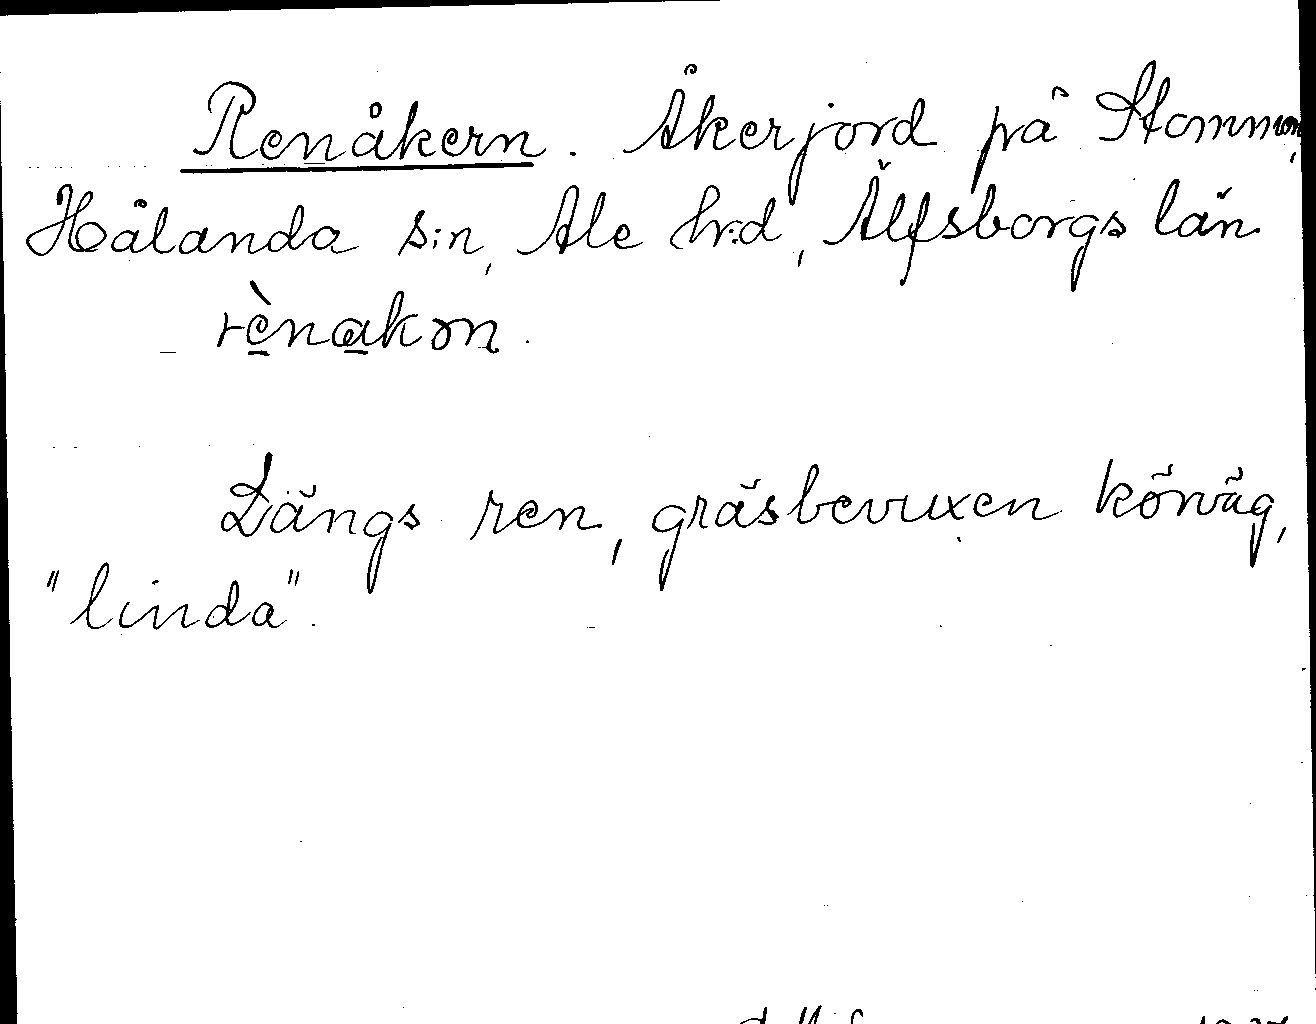 Renåkern. Åkerjord på Stommen,
Hålanda s:n, Ale h:d, Älfsborgs län
rènakon.
Längs ren, gräsbevuxen körväg,
"linda".